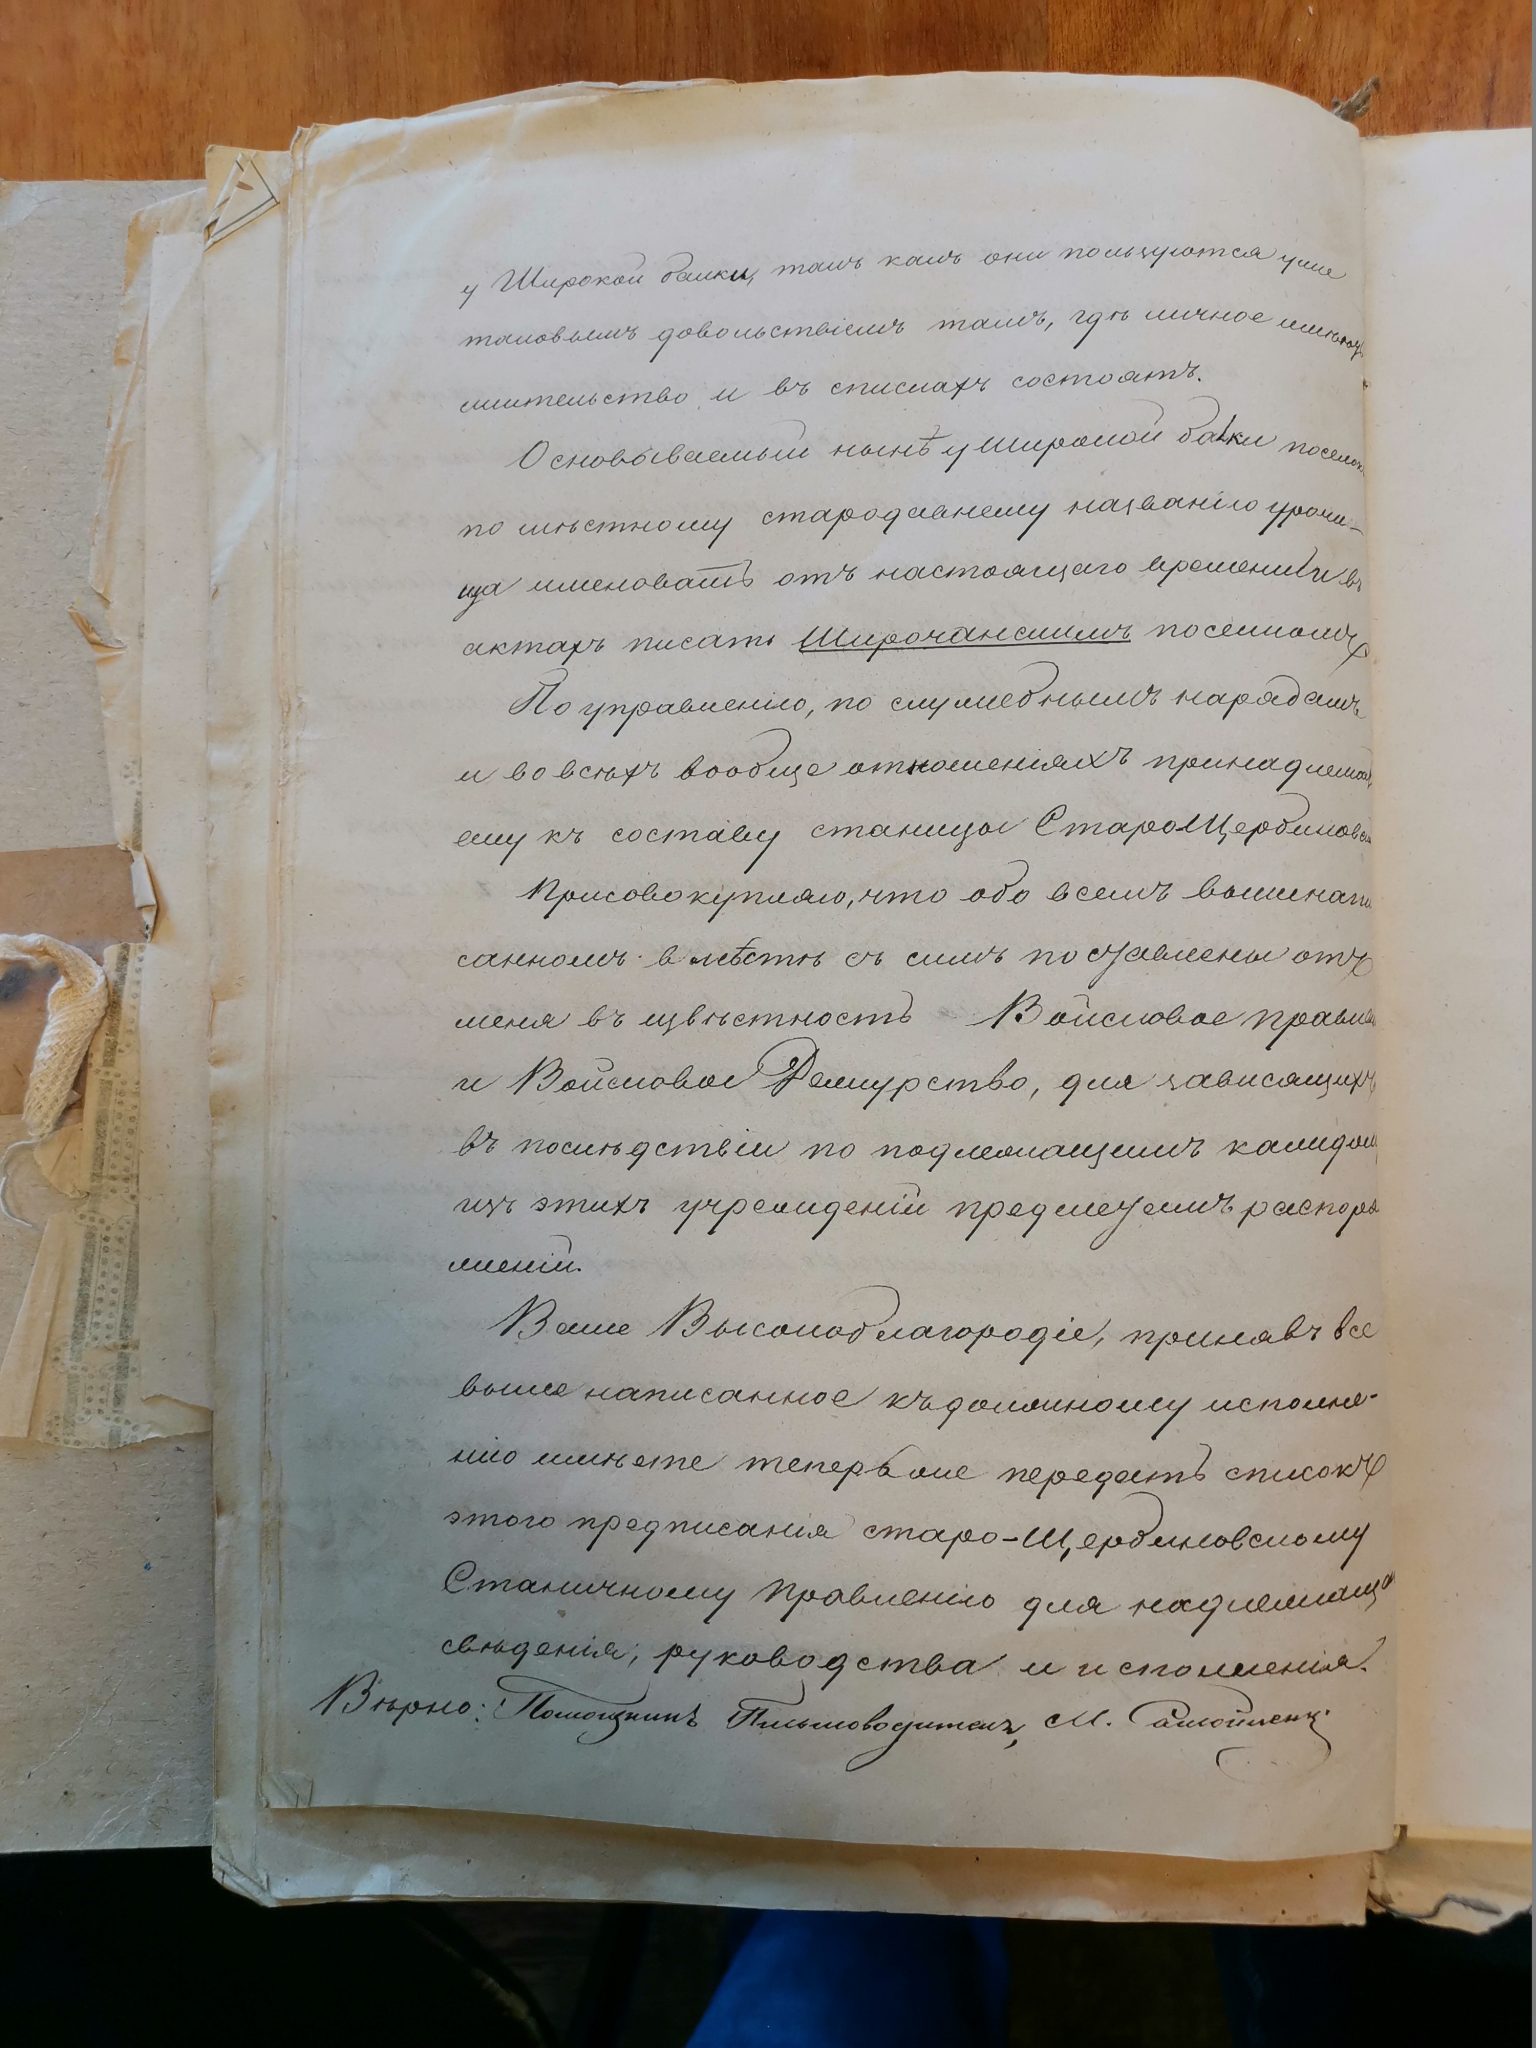 у Широкой балки, такъ какъ они пользуются уже
таковымъ довольствіемъ тамъ, гдѣ личное имѣютъ
жительство и въ спискахъ состоятъ.
Основываемый нынѣ у Широкой балки поселокъ
по мѣстному стародавнему названію урочи-
ща именовать отъ настоящаго времени и въ
актахъ писать Широчанскимъ поселкомъ
По управленію, по служебнымъ нарядамъ
и во всѣхъ вообще отношеніяхъ принадлежать
ему къ составу станицы СтароЩербиновской
Присовокупляю, что обо всемъ вышенапи
санномъ вмѣстѣ съ симъ поставлены отъ
меня въ извѣстность Войсковое правленіе
и Войсковое Дежурство, для зависящихъ
въ послѣдствіи по подлежащимъ каждому
изъ этихъ учрежденій предметамъ распоря
женій.
Ваше Высокоблагородіе, принявъ все
выше написанное къ должному исполне-
нію имѣете теперь же передать списокъ
этого предписанія старо-Щербиновскому
Станичному Правленію для надлежаща
свѣденія, руководства и исполненія.
Вѣрно: Помощникъ Письмоводителя, М.